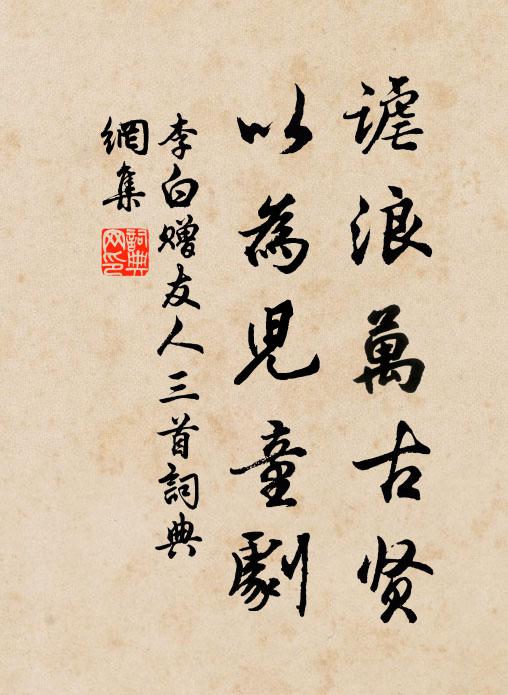 謔浪萬古贤
以為兒童劇
李白赠友人三首詞典
網集
詞典
网印